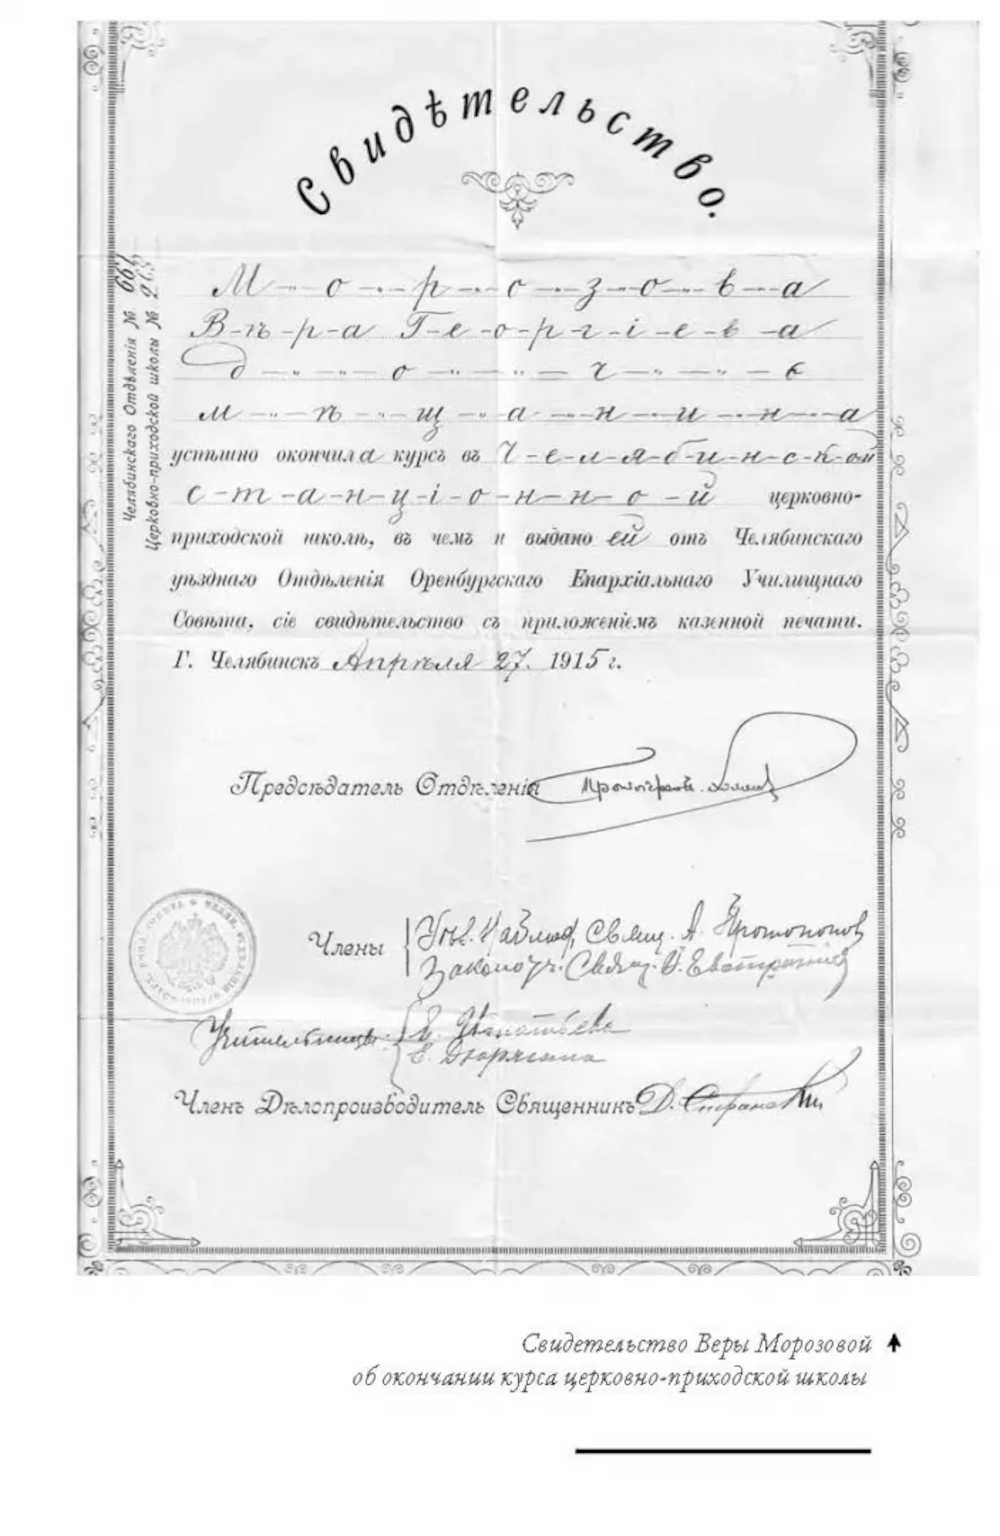 Свидѣтельство.
Челябинскаго Отдѣленія № 667
Церковно-приходской школы №
М о р о з о в а
Вѣра Георгіева
дочь
мѣщанина
успѣшно окончила курсъ въ Челябинской
станціонной церковно-
приходской школѣ, въ чемъ и выдано ей отъ Челябинскаго
уѣзднаго Отдѣленія Оренбургскаго Епархіальнаго Училищнаго
Совѣта, сіе свидѣтельство съ приложеніемъ казенной печати.
Г. Челябинскъ Апрѣля 27. 1915 г.
Предсѣдатель Отдѣленія
Члены Свящ. А. Протопопов
Законоуч. Свящ.
Учительницы
Членъ Дѣлопроизводитель Священникъ Д.
Свидетельство Веры Морозовой
об окончании курса церковно-приходской школы